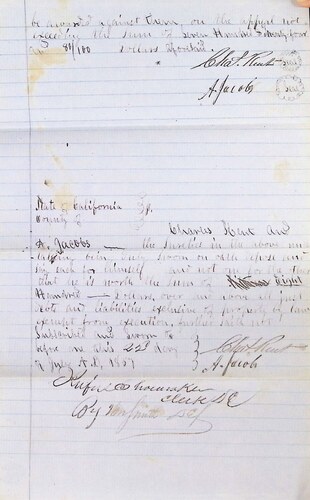 be awarded against them, on the appeal not
exceeding the sum of Seven Hundred & Ninety four
and 81/100 dollars
Chas. Kent Seal
A Jacobs Seal
State of California }
County of } ss.
Charles Kent and
A. Jacobs — the sureties in the above
being duly sworn on oath depose and
say each for himself and not for the other
that he is worth the sum of Eight
Hundred — dollars over and above all just
debts and liabilities exclusive of property by law
exempt from execution, further said not
Subscribed and Sworn to
before me this 22d day
of July A.D. 1857
Chas. Kent
A. Jacobs
Rufus Shoemaker
Clerk D.C.
By